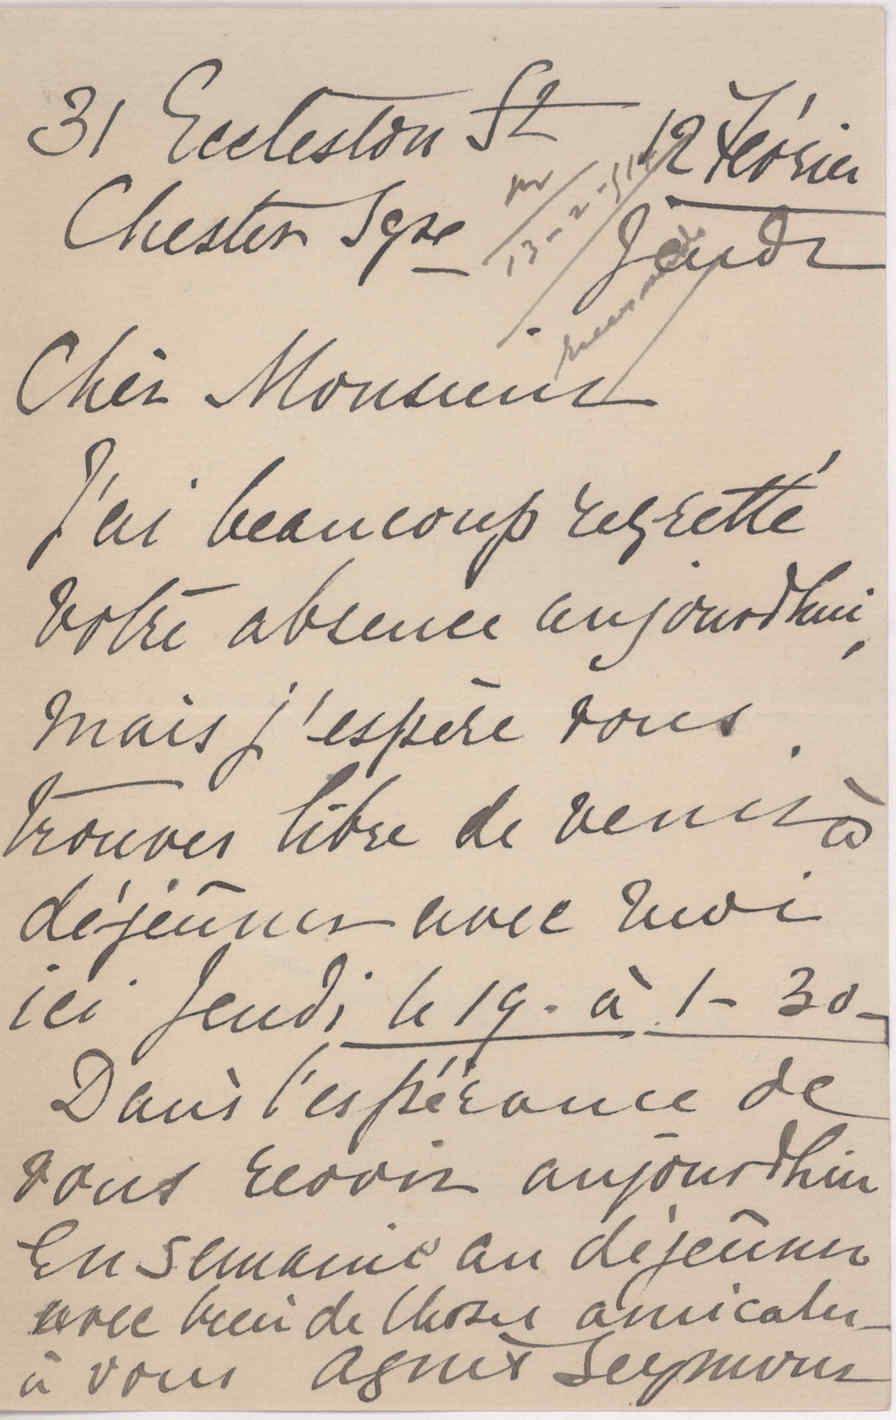 31 Eccleston St 12 Février
Chester Sqre Jeudi
13-2-14
Chèr Monsieur
J'ai beaucoup regretté
votre absence aujourd'hui,
mais j'espère vous
trouver libre de venir à
déjeûner avec moi
ici Jeudi le 19. à 1-30-
Dans l'espérance de
vous revoir aujourd'hui
En semaine au déjeûner
avec bien de choses amicales
à vous Agnès Seymour